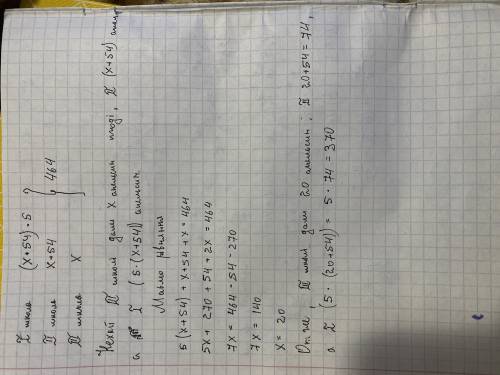 I школа (x+54)·5
II школа x+54 } 464
III школа x
Нехай III школі дали x апельсин тоді, II (x+54) апель
а I (5·(x+54)) апельсин.
Маємо рівняння
5(x+54)+x+54+x=464
5x+270+54+2x=464
7x=464-54-270
7x=140
x=20
Отже III школі дали 20 апельсин; II 20+54=74,
а I (5·(20+54))=5·74=370